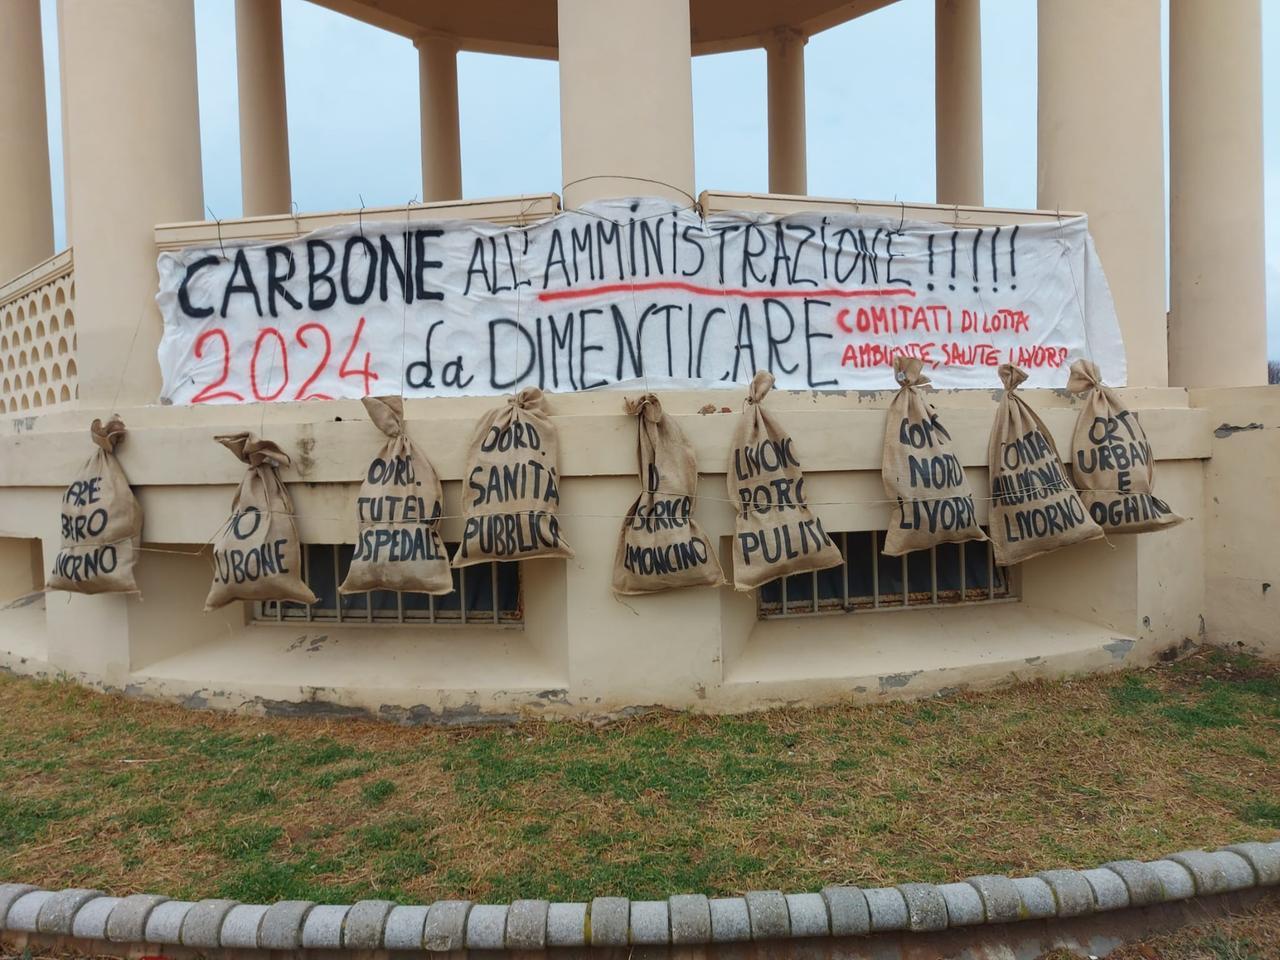 CARBONE ALL'AMMINISTRAZIONE!!!!!
2024 da DIMENTICARE
COMITATI DI LOTTA
AMBIENTE, SALUTE, LAVORO
LIVORNO
NO
RUBONE
COORD.
TUTELA
OSPEDALE
COORD.
SANITÀ
PUBBLICA
LIMONCINO
LIVORNO
PORTO
PULITO
COM.
NORD
LIVORNO
ALLUVIONATI
LIVORNO
ORTI
URBANI
E